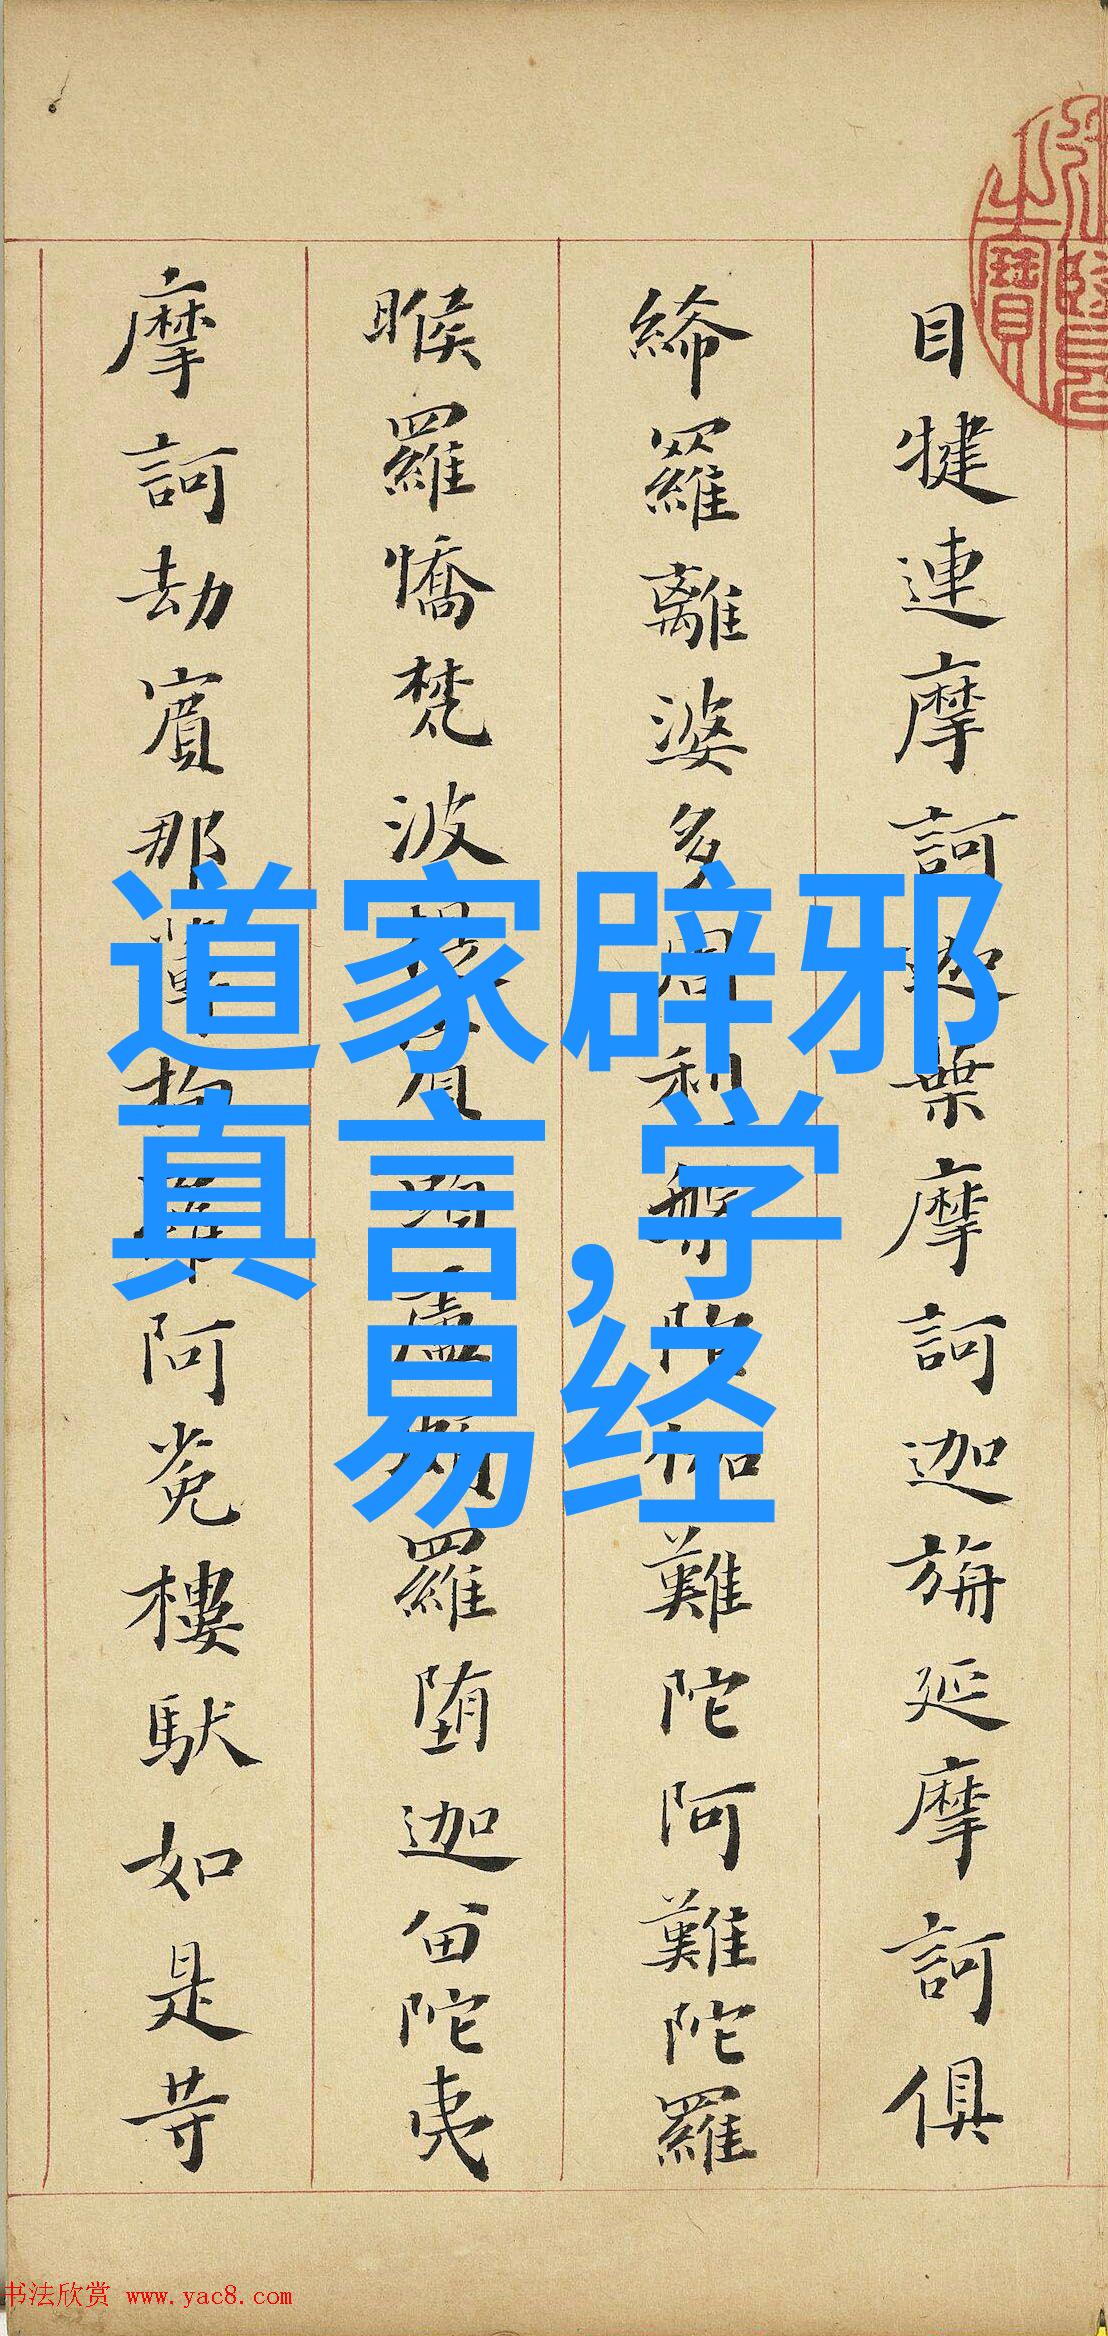 目犍連摩訶迦葉摩訶迦旃延摩訶俱
絺羅離婆多周利槃陀伽難陀阿難陀羅
睺羅憍梵波提賓頭盧頗羅堕迦留陀夷
摩訶劫賓那薄拘羅阿㝹樓馱如是等
道家辟邪
真言,学
易经
书法欣赏 www.yac8.com